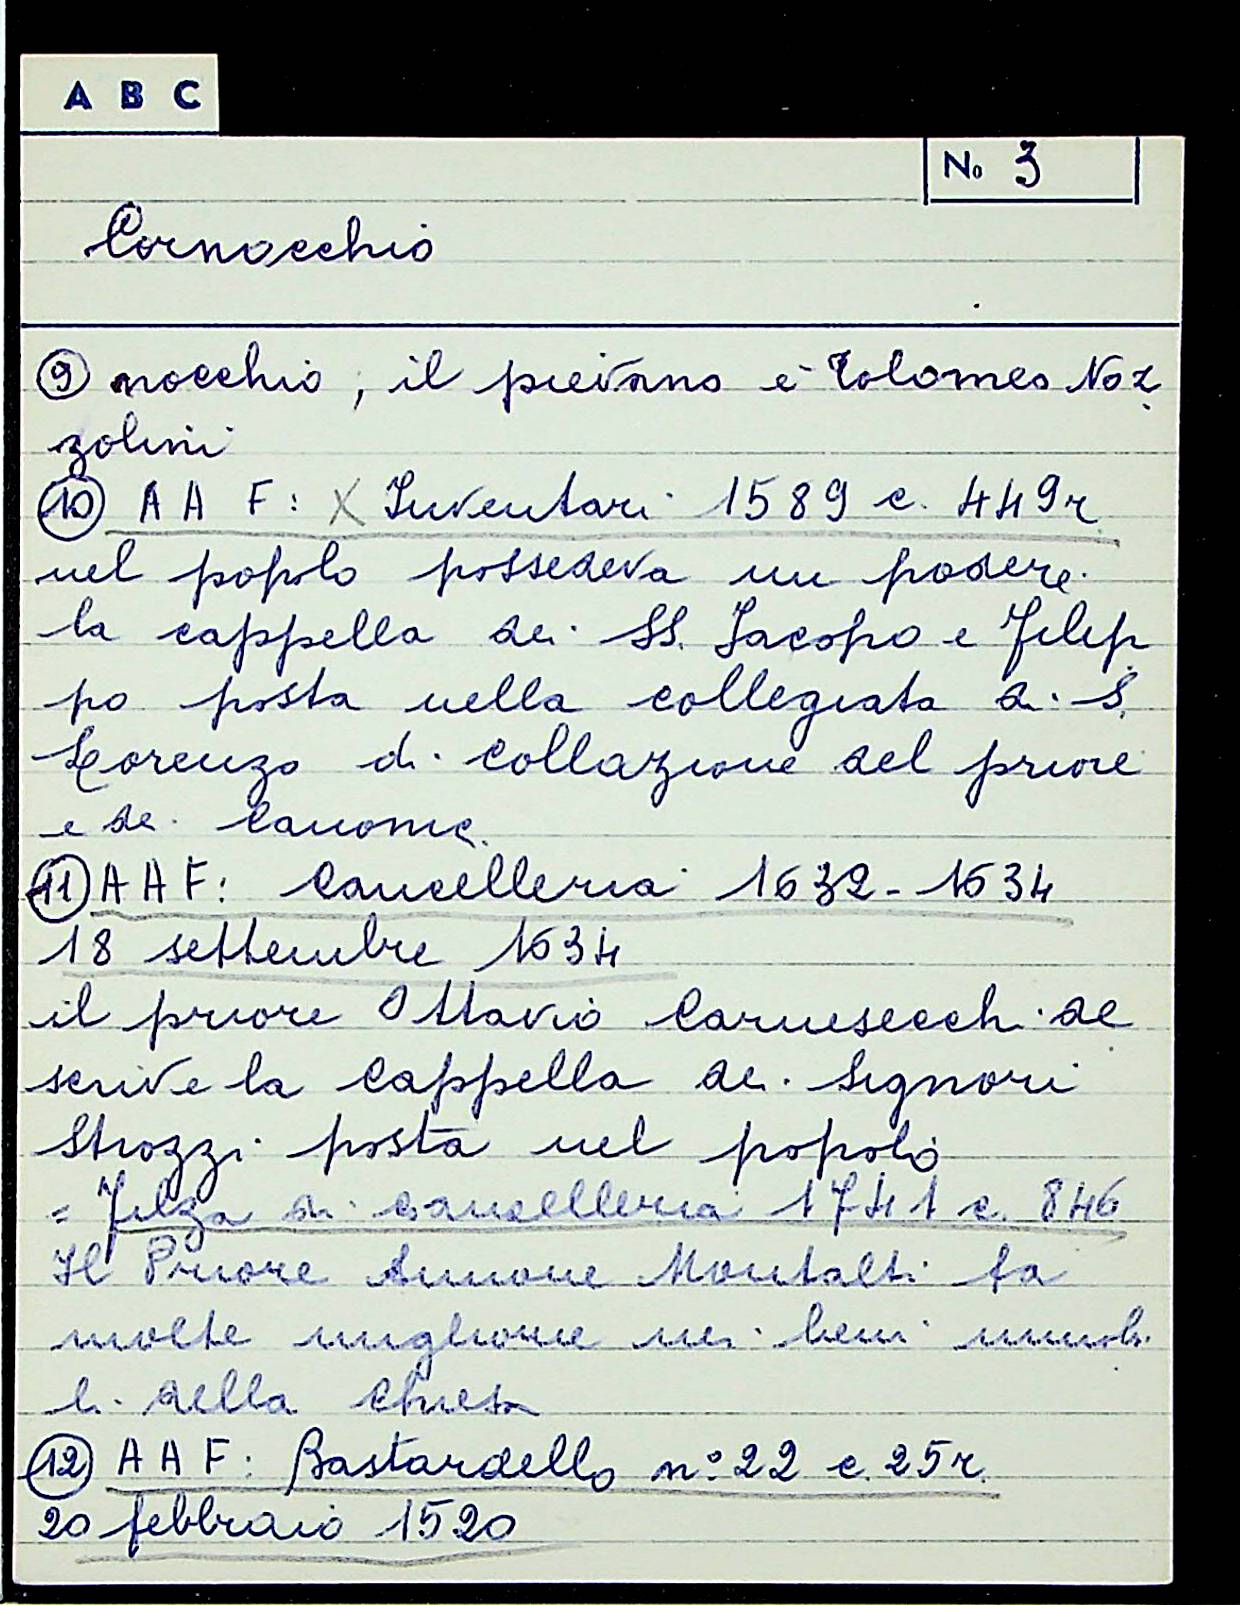 A B C
No 3
Cornocchio
9 nocchio, il pievano è Tolomeo Noz
zolini
10 A A F: X Inventari 1589 c. 449r
nel popolo possedeva un podere
la cappella dei SS. Jacopo e Filip
po posta nella collegiata di S.
Lorenzo di collazione del priore
e dei Canonic.
11 A A F: Cancelleria 1632-1634
18 settembre 1634
il priore Ottavio Carnesecchi de
scrive la cappella dei Signori
Strozzi posta nel popolo
= Filza di cancelleria 1741 c. 846
Il Priore Annone Montalti fa
molte migliorie nei beni immobi
li della chiesa
12 A A F: Bastardello n° 22 c. 25r.
20 febbraio 1520